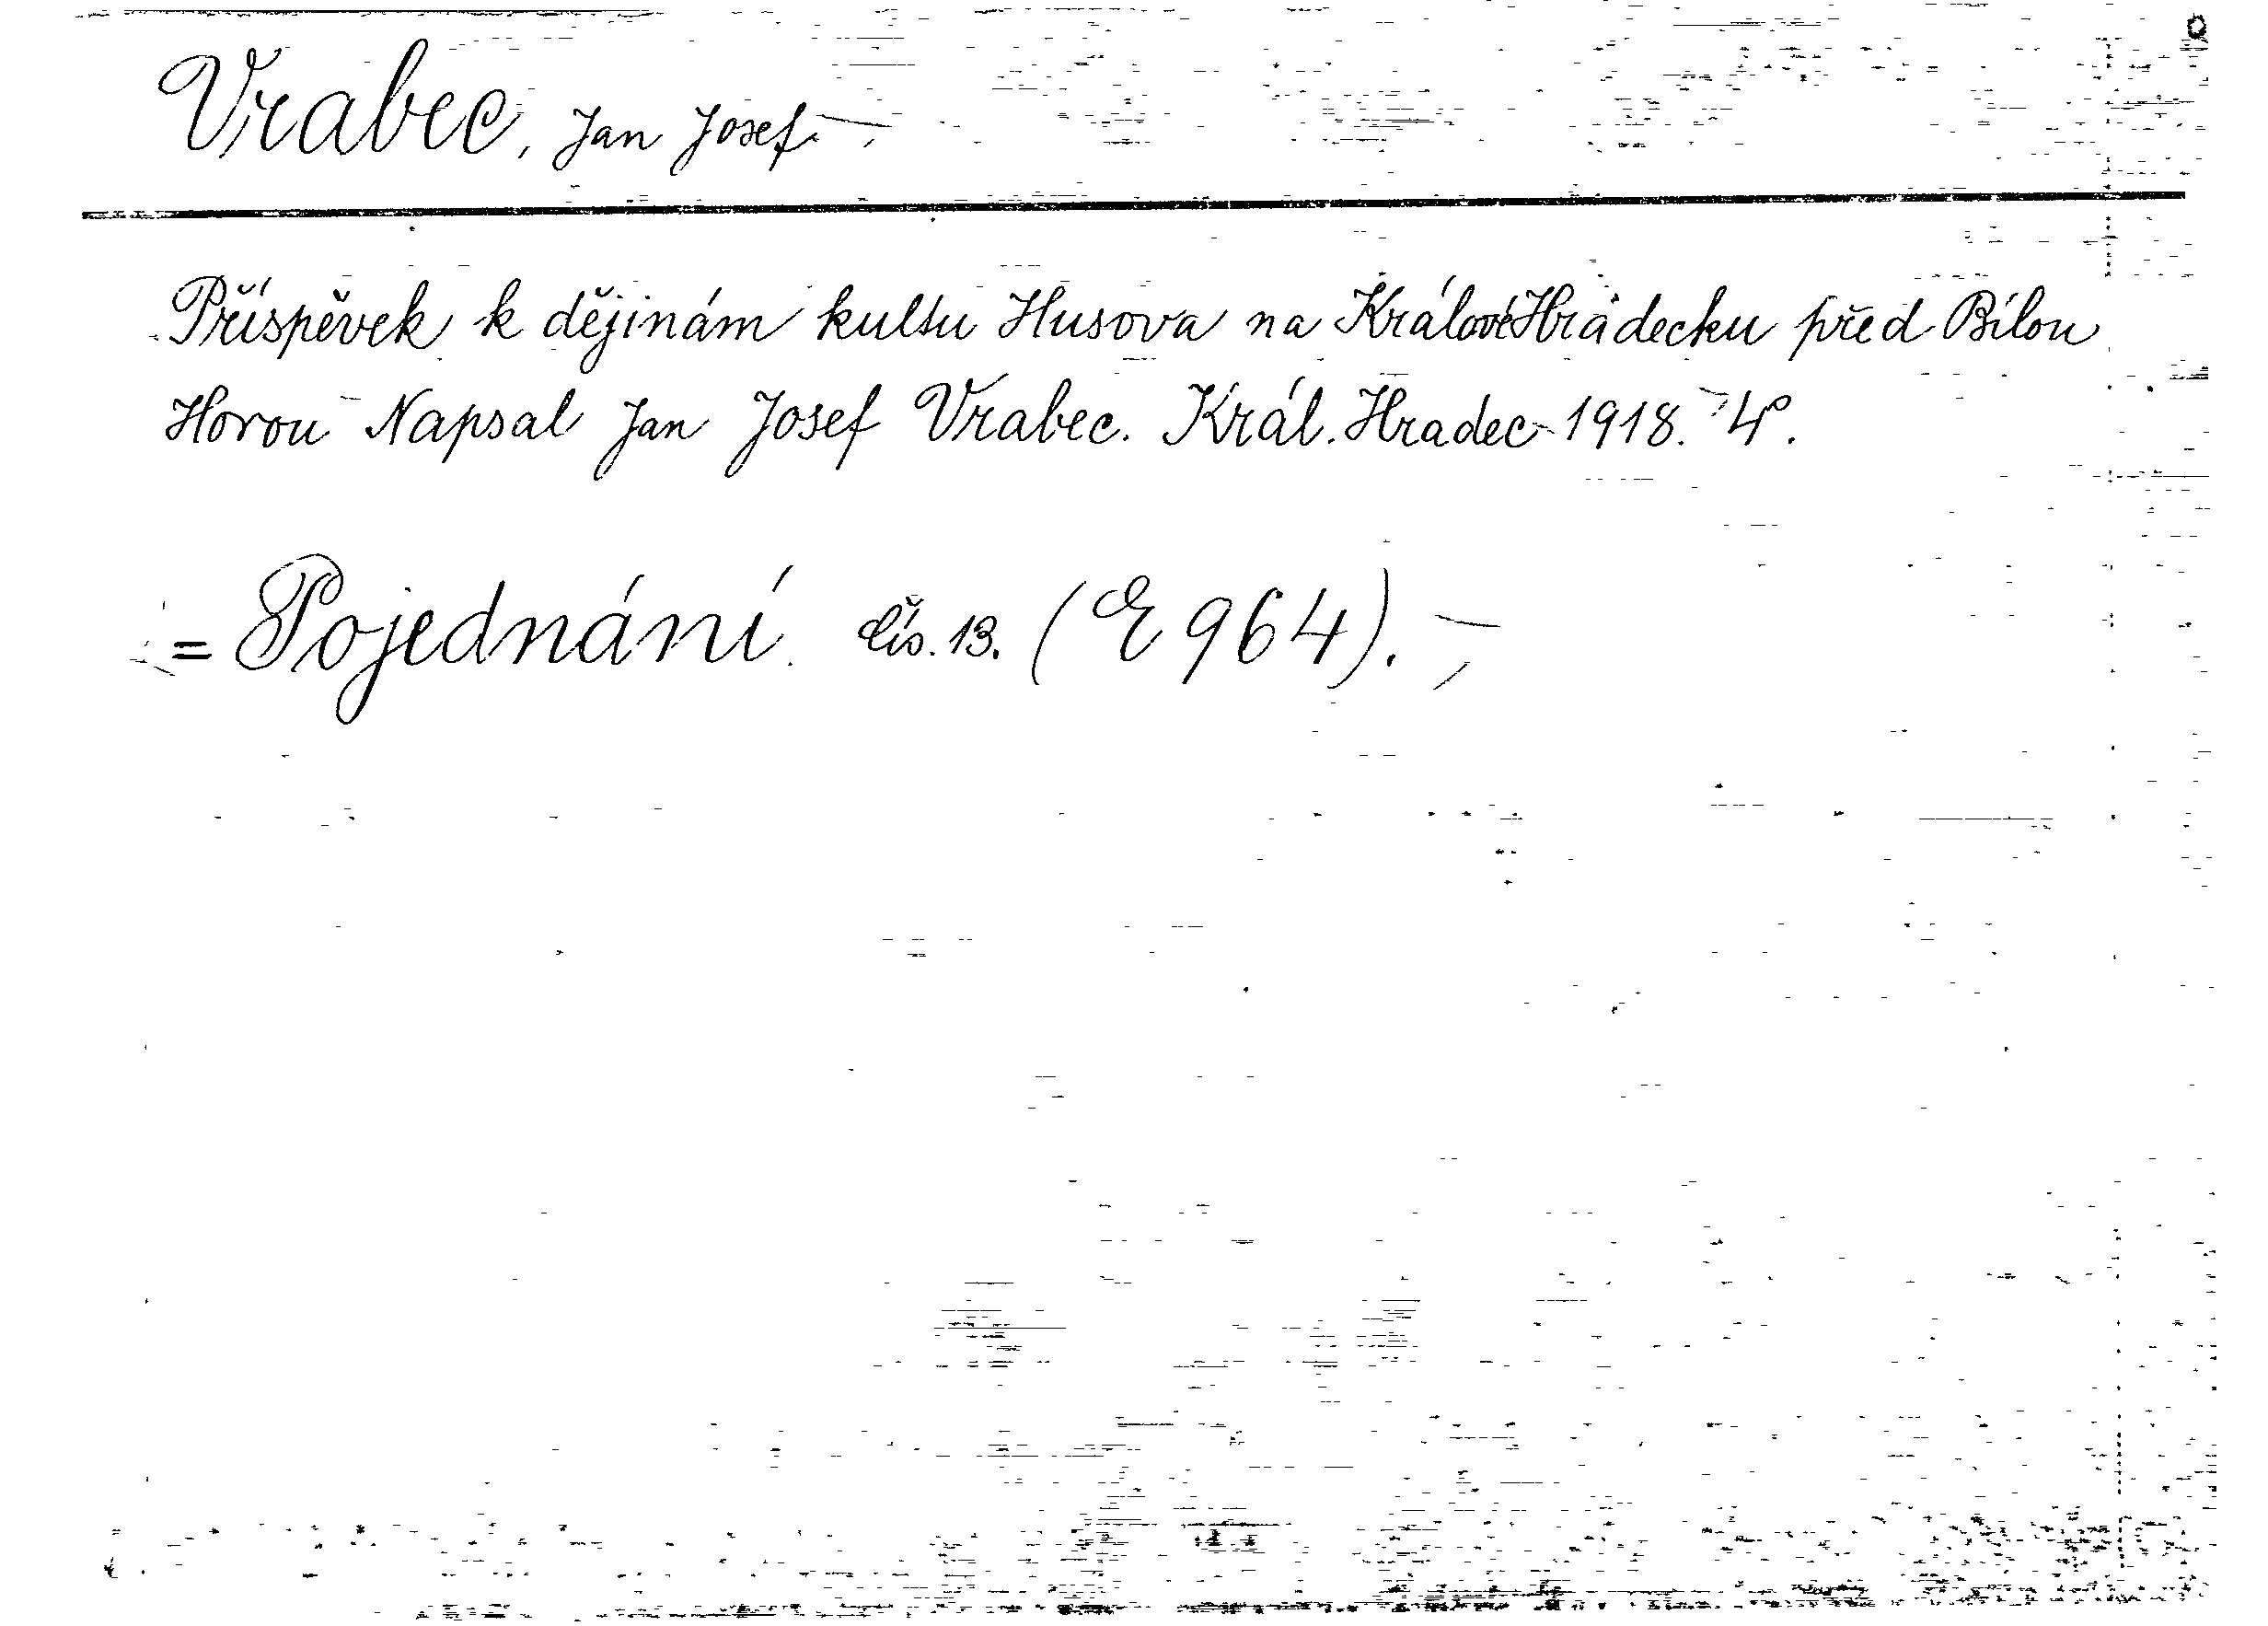 Vrabec, Jan Josef
Příspěvek k dějinám kultu Husova na KrálovéHradecku před Bílou
Horou Napsal Jan Josef Vrabec. Král. Hradec 1918. 4°.
= Pojednání čís. 13. (E 964).